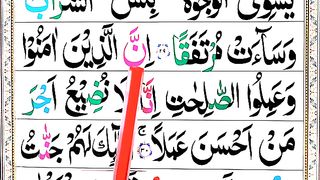 يَشْوِى الْوُجُوْهَ ؕ بِئْسَ الشَّرَابُ
وَسَآءَتْ مُرْتَفَقًا ﴿۲۹﴾ اِنَّ الَّذِيْنَ اٰمَنُوْا
وَعَمِلُوا الصّٰلِحٰتِ اِنَّا لَا نُضِيْعُ اَجْرَ
مَنْ اَحْسَنَ عَمَلًا ﴿۳۰﴾ اُولٰٓئِكَ لَهُمْ جَنّٰتُ